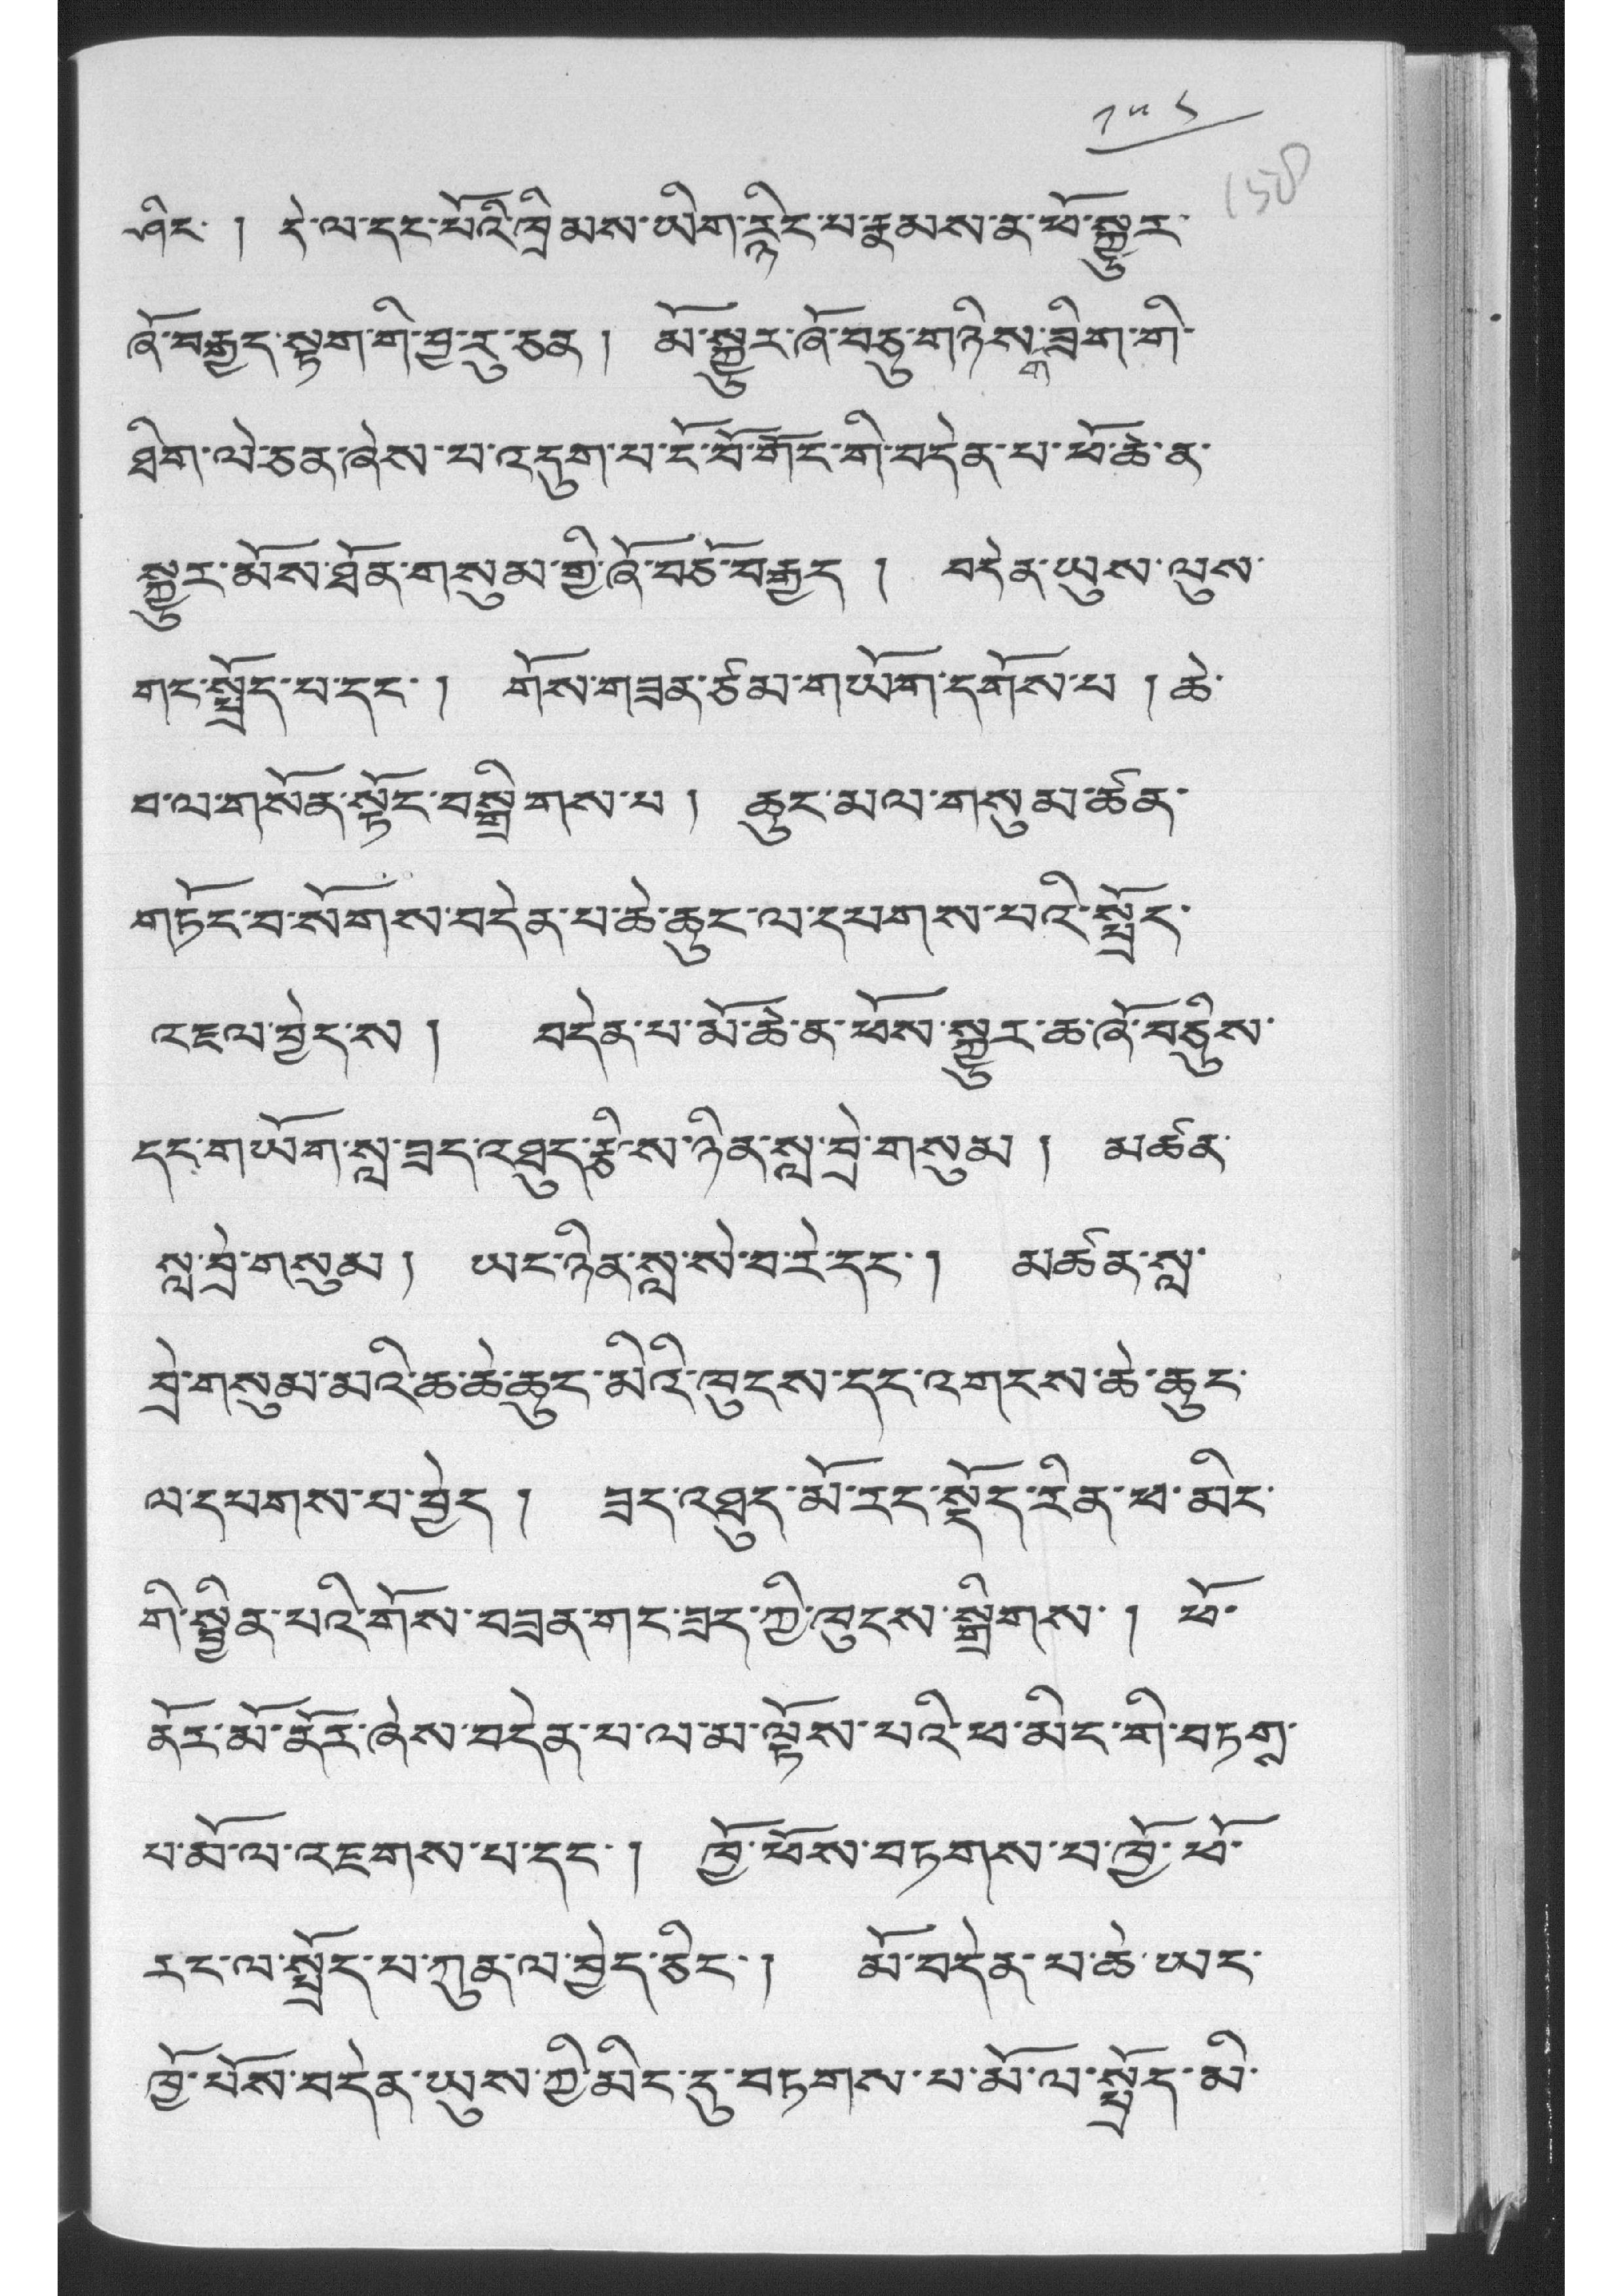 ༡༥༨
158
ཤིང་ ། དེ་ལ་དང་པོའི་ཁྲིམས་ཡིག་རྙིང་པ་རྣམས་ན་ཕོ་སྐྱུར་
ཞོ་བརྒྱད་སྟག་གི་བྱ་རུ་ཅན ། མོ་སྐྱུར་ཞོ་བཅུ་གཉིས་གཟིག་གི་
ཐིག་ལེ་ཅན་ཞེས་པ་འདུག་པ་ངོ་བོ་གོང་གི་བདེན་པ་ཕོ་ཆེ་ན་
སྐྱུར་མོས་ཐོན་གསུམ་གྱི་ཞོ་བཅོ་བརྒྱད ། བདེན་ཡུས་ལུས་
གང་སྤྲོད་པ་དང་ ། གོས་གཟན་ཙམ་གཡོག་དགོས་པ ། ཆེ་
བ་ལ་གསོན་སྟོང་བསྒྲིགས་པ ། ཆུང་མལ་གསུམ་ཚན་
གཏོང་བ་སོགས་བདེན་པ་ཆེ་ཆུང་ལ་དཔགས་པའི་སྤྲོད་
འཇལ་བྱེད་ས ། བདེན་པ་མོ་ཆེ་ན་ཕོས་སྐྱུར་ཆ་ཞོ་བཅུས་
དང་གཡོག་སླ་ཟང་འཐུད་རྩིས་ཉིན་སླ་བྲེ་གསུམ ། མཚན་
སླ་བྲེ་གསུམ ། ཡང་ཉིན་སླ་སེ་བ་རེ་དང་ ། མཚན་སླ་
བྲེ་གསུམ་མའི་ཆ་ཆེ་ཆུང་མིའི་ཁུངས་དང་འགངས་ཆེ་ཆུང་
ལ་དཔགས་པ་བྱེད ། ཟང་འཐུད་མོ་རང་སྡོད་རིན་ཕ་མིང་
གི་སྦྱིན་པའི་གོས་བཟན་གང་ཟང་ཀྱི་ཁུངས་སྒྲིགས ། ཕོ་
ནོར་མོ་ནོར་ཞེས་བདེན་པ་ལ་མ་ལྟོས་པའི་ཕ་མིང་གི་བཏགས་
པ་མོ་ལ་འཇགས་པ་དང་ ། ཁྱོ་ཕོས་བཏགས་པ་ཁྱོ་ཕོ་
རང་ལ་སྤྲོད་པ་ཀུན་ལ་བྱེད་ཅིང་ ། མོ་བདེན་པ་ཆེ་ཡང་
ཁྱོ་པོས་བདེན་ཡུས་ཀྱི་མིང་དུ་བཏགས་པ་མོ་ལ་སྤྲོད་མི་